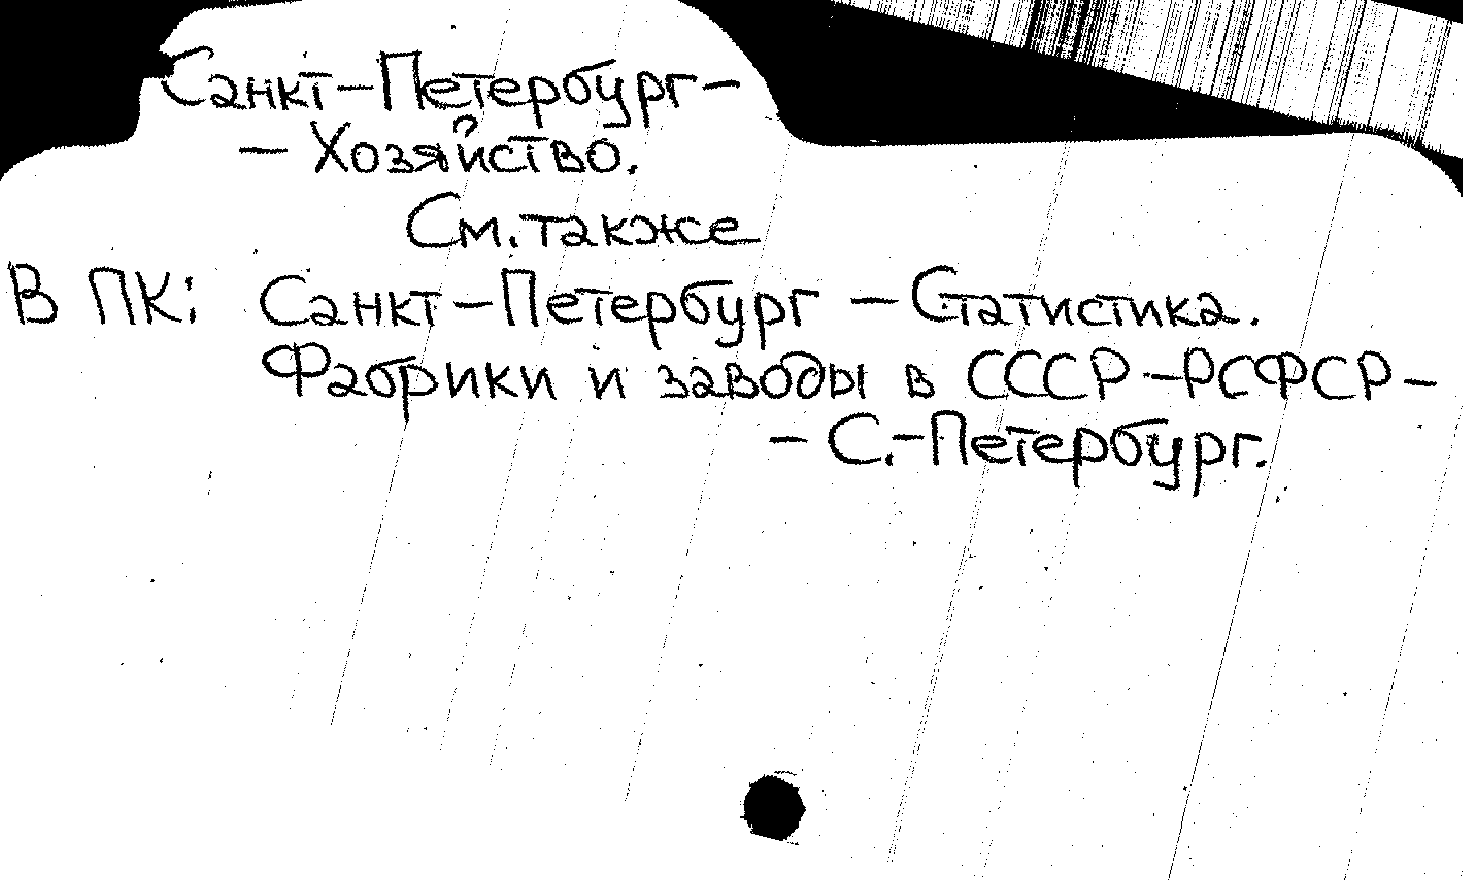 Санкт-Петербург-
- Хозяйство.
См. также
В ПК: Санкт-Петербург - Статистика.
Фабрики и заводы в СССР-РСФСР-
- С.-Петербург.